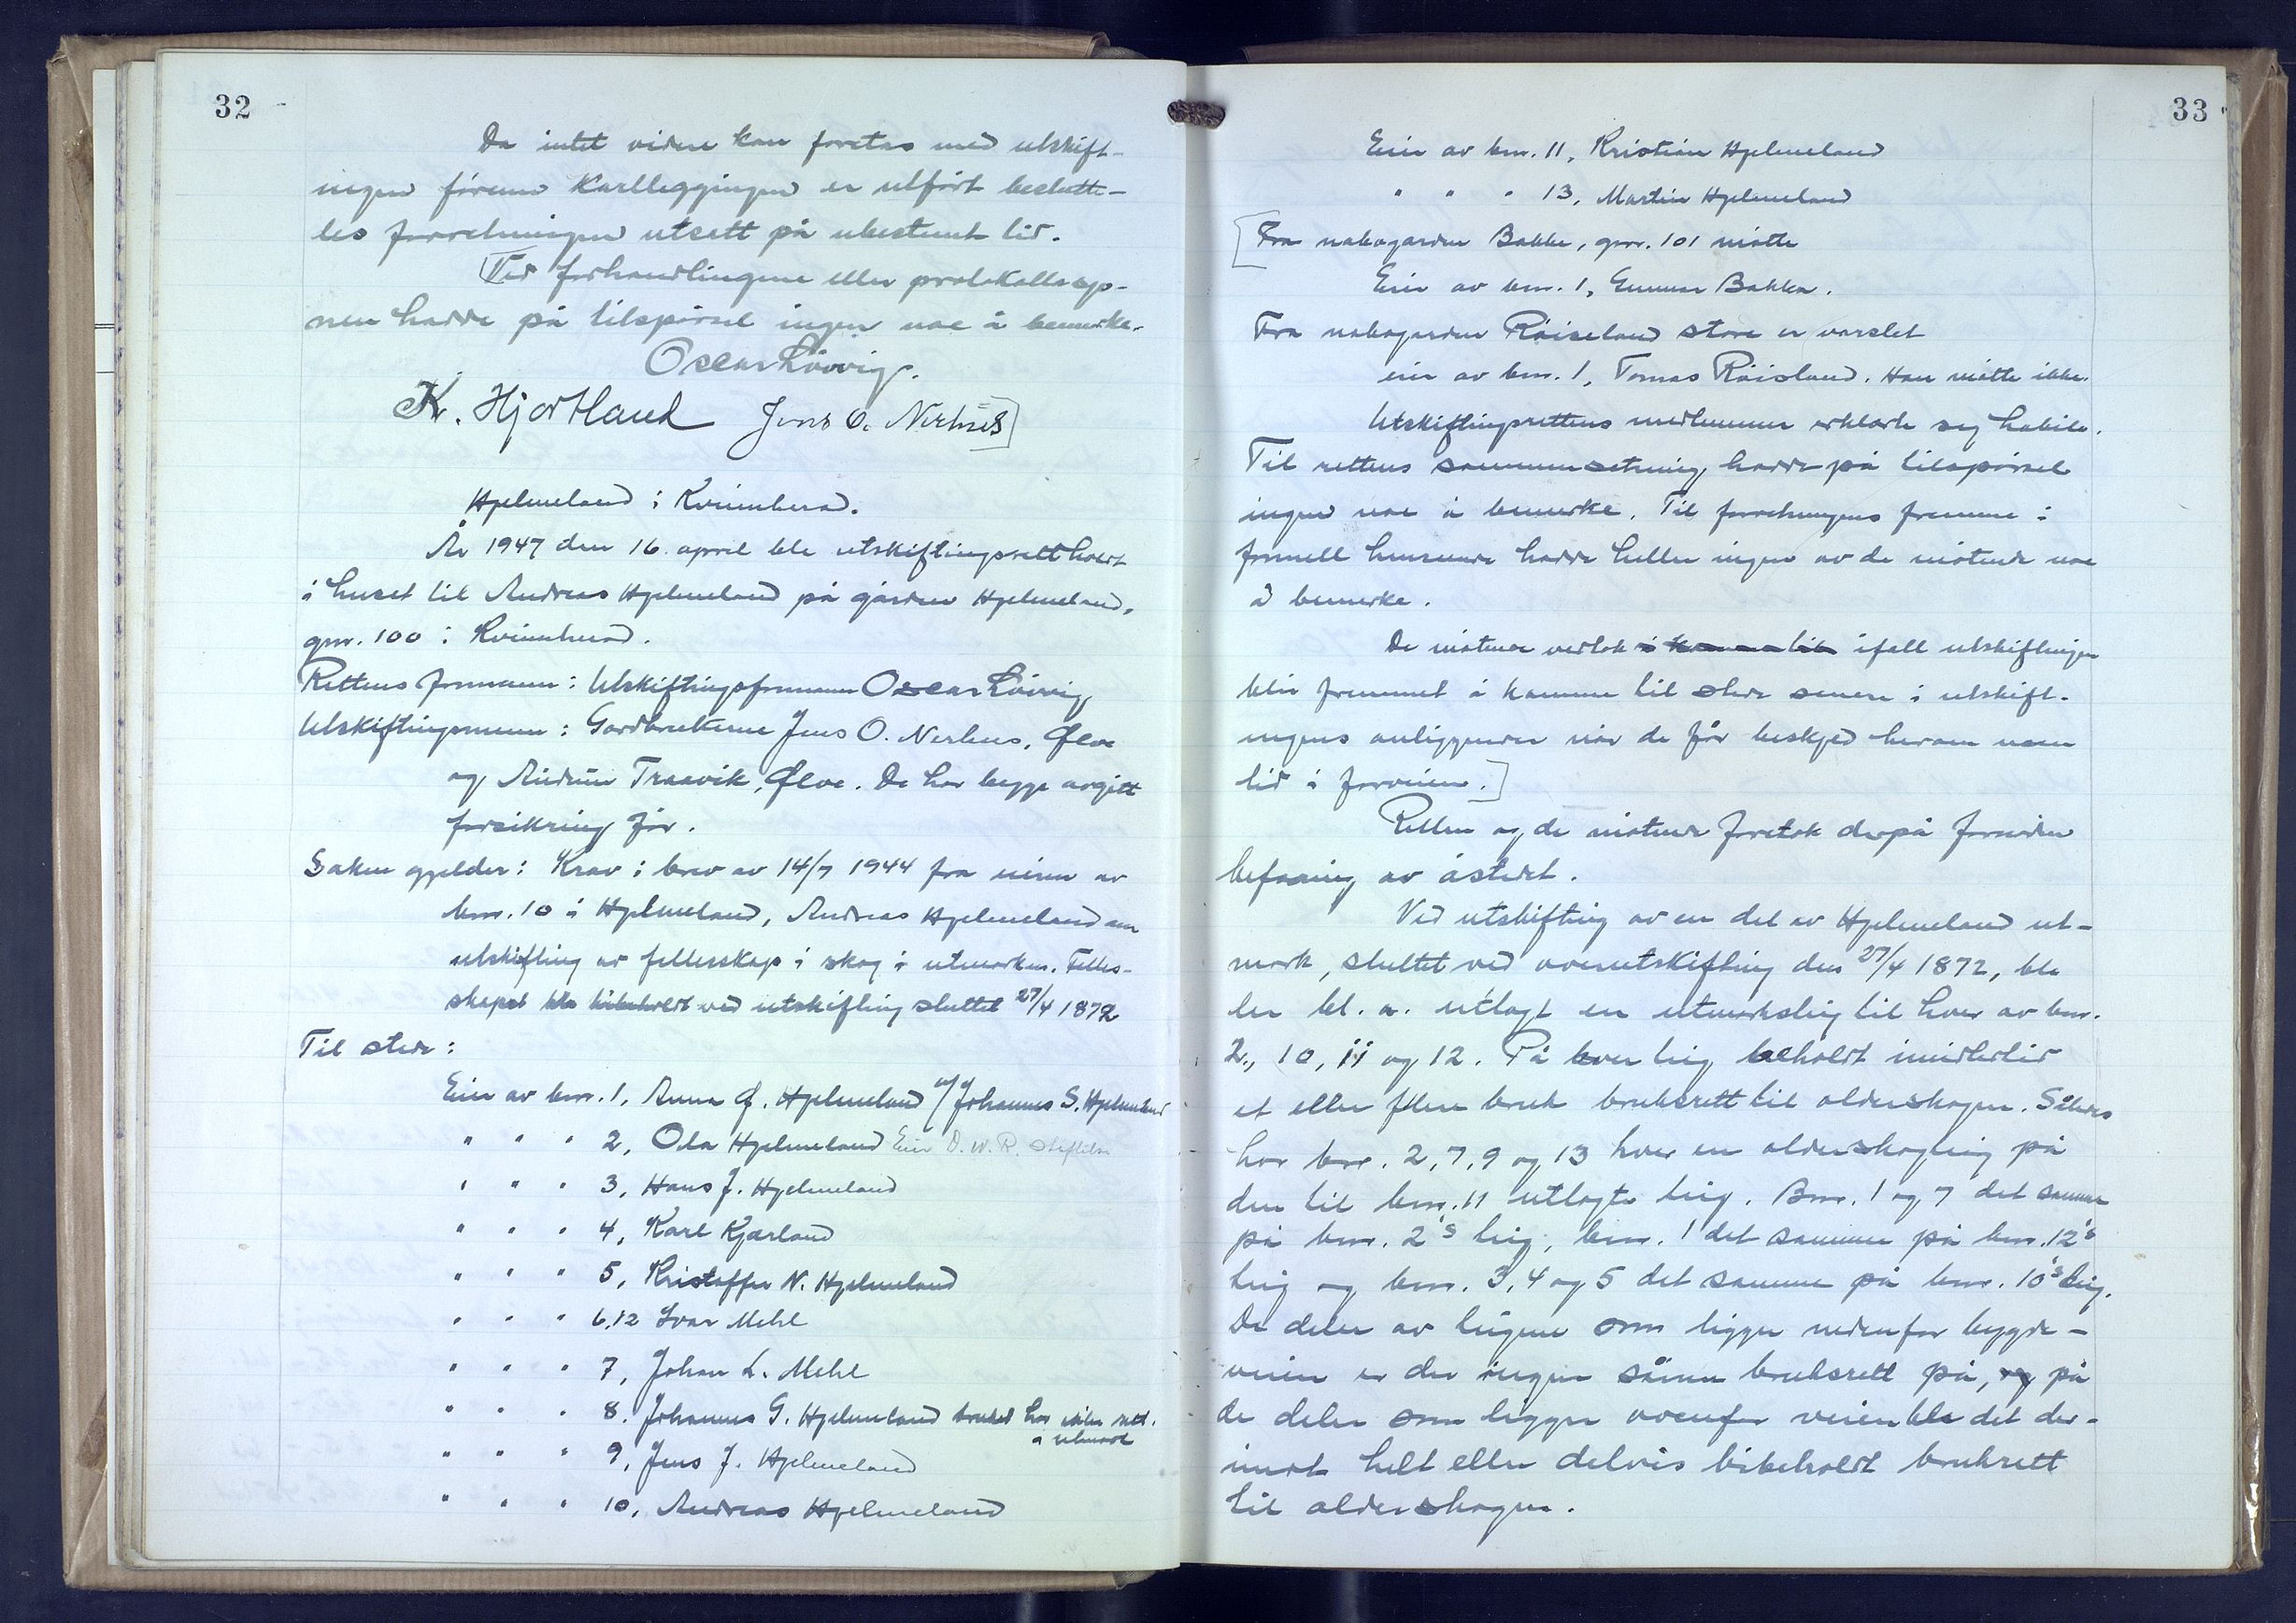 32
Da intet videre kan foretas med utskift-
ningen förenn kartleggingen er utfört beslutte-
tes forretningen utsett på ubestemt tid.
Ved forhandlingene eller protokollasjo-
nen hadde på tilspörsel ingen noe å bemerke.
Oscar Lövvig.
K. Hjortland Jens O. Nerhus
Hjelmeland i Kvinnherad.
År 1947 den 16. april ble utskiftingsrett holdt
i huset til Andreas Hjelmeland på gården Hjelmeland,
gnr. 100 i Kvinnherad.
Rettens formann: Utskiftingsformann Oscar Lövvig
Utskiftingsmenn: Gardbrukerne Jens O. Nerhus, Ølve
og Andreas Traavik, Ølve. De har begge avgitt
forsikring för.
Saken gjelder: Krav i brev av 14/7 1944 fra eieren av
bnr. 10 i Hjelmeland, Andreas Hjelmeland om
utskifting av fellesskap i skog i utmarken. Felles-
skapet ble bibeholdt ved utskifting sluttet 27/4 1872
Til stede:
Eier av bnr. 1, Anna G. Hjelmeland v/ Johannes S. Hjelmeland
" " " 2, Ola Hjelmeland Eier D. W. R. stiftelse
" " " 3, Hans J. Hjelmeland
" " " 4, Karl Kjærland
" " " 5, Kristoffer N. Hjelmeland
" " " 6,12 Ivar Mehl
" " " 7, Johan L. Mehl
" " " 8. Johannes G. Hjelmeland bruket har ikke rett.
i utmark
" " " 9, Jens J. Hjelmeland
" " " 10, Andreas Hjelmeland
33
Eier av bnr. 11, Kristian Hjelmeland
" " " 13, Martin Hjelmeland
Fra nabogarden Bakke, gnr. 101 mötte
Eier av bnr. 1, Gunnar Bakka.
Fra nabogarden Röiseland store er varslet
eier av bnr. 1, Tomas Röisland. Han mötte ikke.
Utskiftingsrettens medlemmer erklærte seg habile.
Til rettens sammensetning hadde på tilspörsel
ingen noe å bemerke. Til forretningens fremme i
formell henseende hadde heller ingen av de mötende noe
å bemerke.
De mötende vedtok i komme til ifall utskiftingen
blir fremmet å komme til stede senere i utskift-
ningens anliggender når de får beskjed herom noen
tid i forveien.
Retten og de mötende foretok derpå fornöden
befaring av åstedet.
Ved utskifting av en del av Hjelmeland ut-
mark, sluttet ved overutskifting den 27/4 1872, ble
der bl. a. utlagt en utmarksteig til hver av bnr.
2, 10, 11 og 12. På hver teig beholdt imidlertid
et eller flere bruk bruksrett til olderskogen. Således
har bnr. 2, 7, 9 og 13 hver en olderskogteig på
den til bnr. 11 utlagte teig. Bnr. 1 og 7 det samme
på bnr. 2's teig, bnr. 1 det samme på bnr. 12's
teig og bnr. 3, 4 og 5 det samme på bnr. 10's teig.
De deler av teigene som ligger nedenfor bygde-
veien er der ingen sånn bruksrett på, og på
de deler som ligger ovenfor veien ble det der-
imot helt eller delvis bibeholdt bruksrett
til olderskogen.